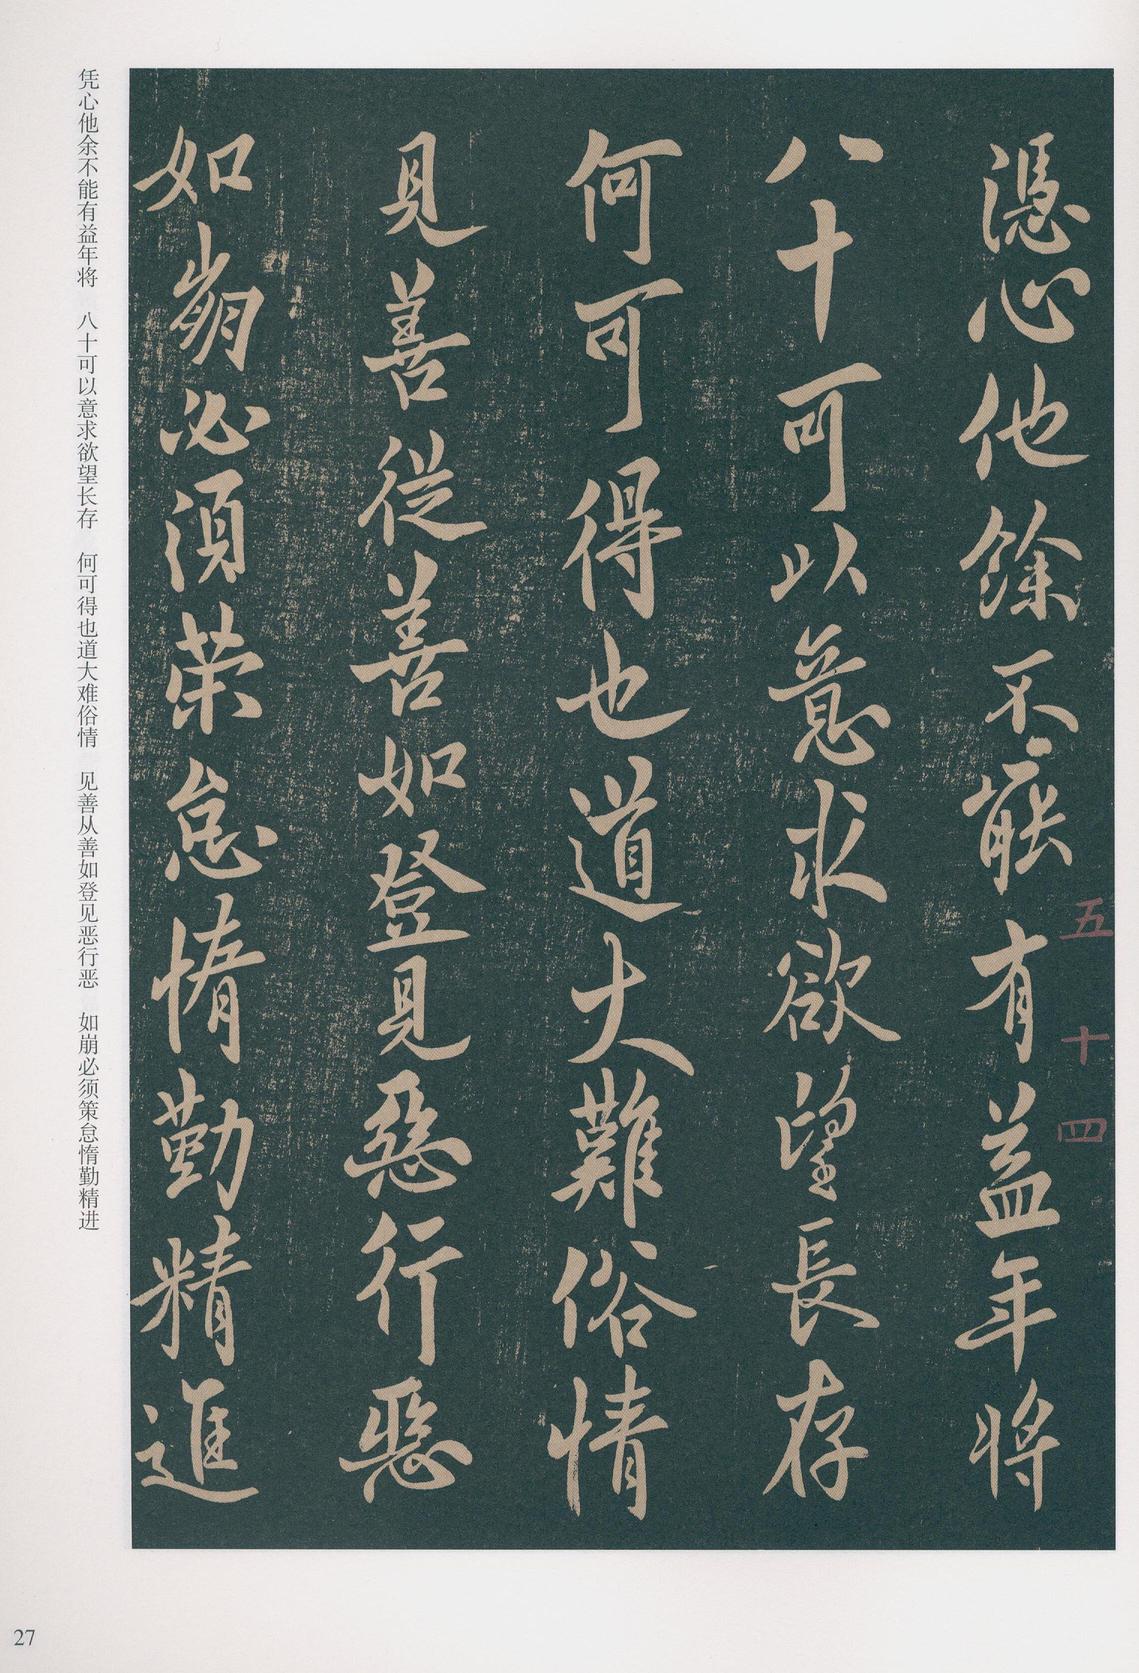 憑心他餘不能有益年將
八十可以意求欲望長存
何可得也道大難俗情
見善從善如登見惡行惡
如崩必須策怠惰勤精進
五十四
凭心他余不能有益年将　八十可以意求欲望长存　何可得也道大难俗情　见善从善如登见恶行恶　如崩必须策怠惰勤精进
27